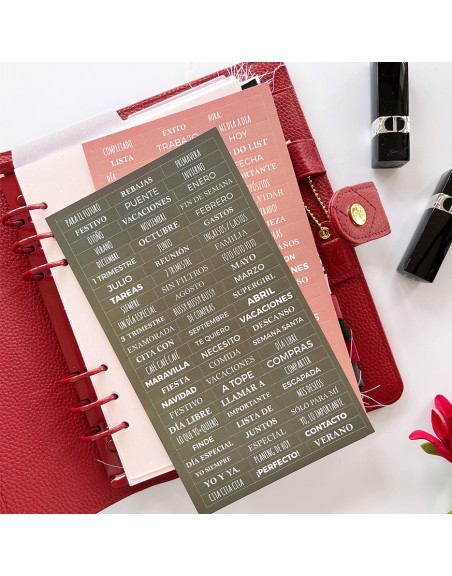 COMPLETADO ÉXITO HORA:
LISTA TRABAJO MI DIA A DIA
DÍA HOY
DO LIST
FECHA
IMPORTANTE
VIDAR
PARA EL FUTURO REBAJAS PRIMAVERA
FESTIVO PUENTE INVIERNO
OTOÑO VACACIONES ENERO
VERANO NOVIEMBRE FIN DE SEMANA
DICIEMBRE OCTUBRE FEBRERO
1 TRIMESTRE JUNIO GASTOS
JULIO REUNIÓN INGRESOS / GASTOS
TAREAS 2 TRIMESTRE FAMILIA
SIEMPRE SIN FILTROS
UN DÍA ESPECIAL AGOSTO MAYO
3 TRIMESTRE MARZO
ENAMORADA DE COMPRAS SUPERGIRL
CITA CON SEPTIEMBRE ABRIL
CAFÉ CAFÉ CAFÉ TE QUIERO VACACIONES
MARAVILLA NECESITO DESCANSO
FIESTA COMIDA SEMANA SANTA
NAVIDAD VACACIONES DÍA LIBRE
FESTIVO A TOPE COMPRAS
DÍA LIBRE LLAMAR A COMPARTIR
LO QUE DIGAN IMPORTANTE ESCAPADA
FINDE LISTA DE MES DESEOS
DÍA ESPECIAL JUNTOS SÓLO PARA MÍ
YO SIEMPRE ESPECIAL YO, LO IMPORTANTE
YO Y YA. PLANING DE HOY CONTACTO
CITA CITA CITA ¡PERFECTO! VERANO